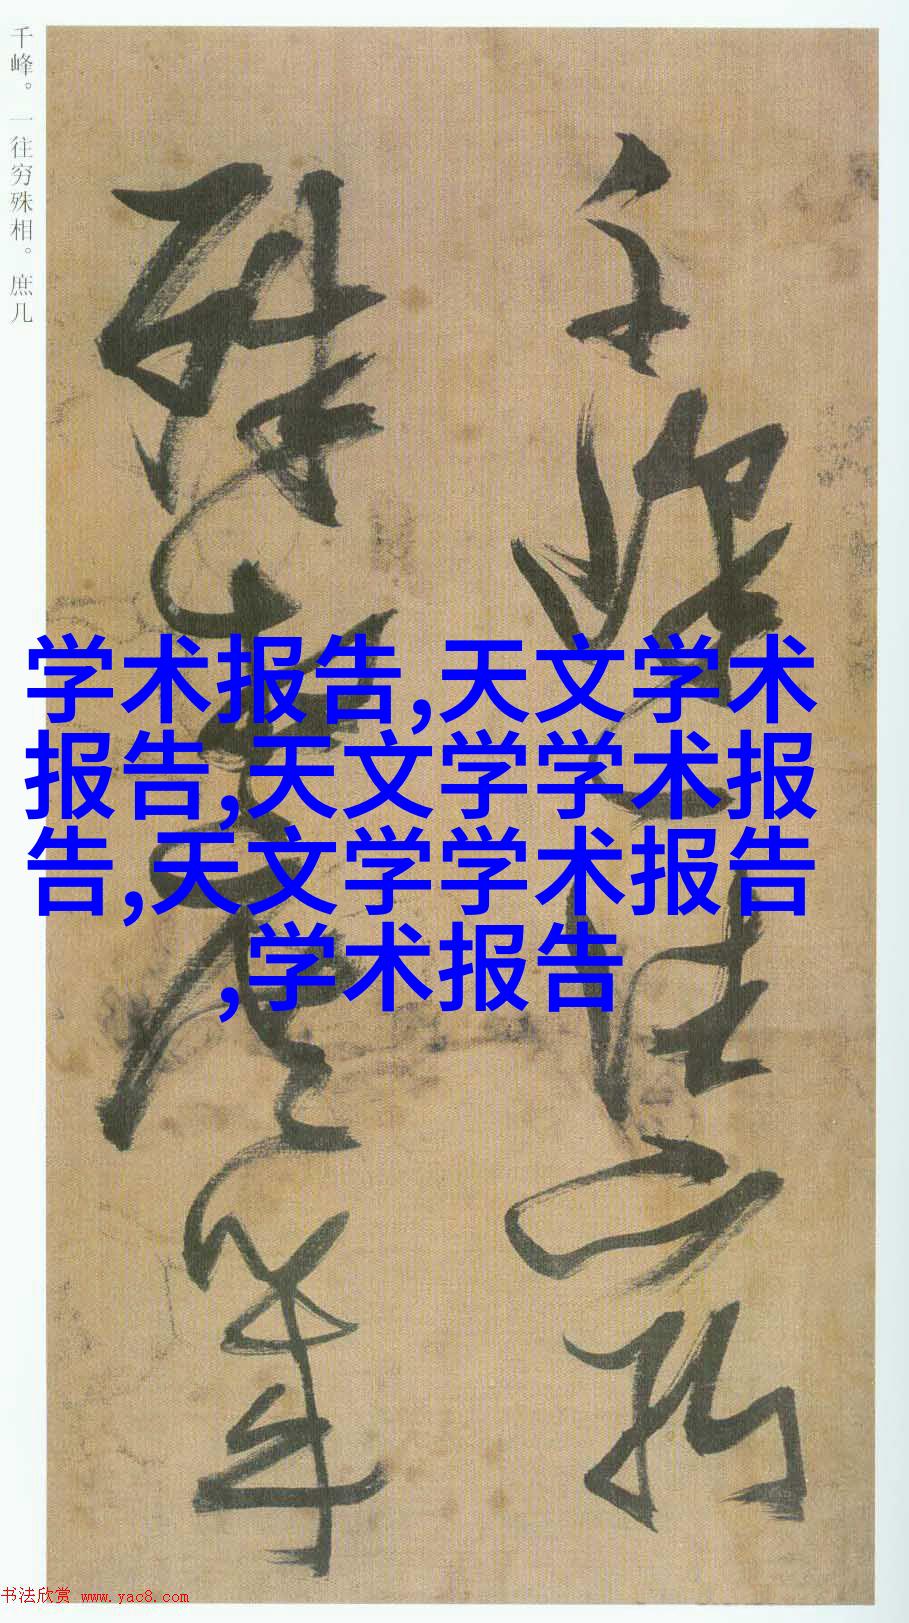 千峰。一往穷殊相。庶几
学术报告,天文学术
报告,天文学学术报
告,天文学学术报告
,学术报告
千峰一往穷
殊相庶几
书法欣赏 www.yac8.com